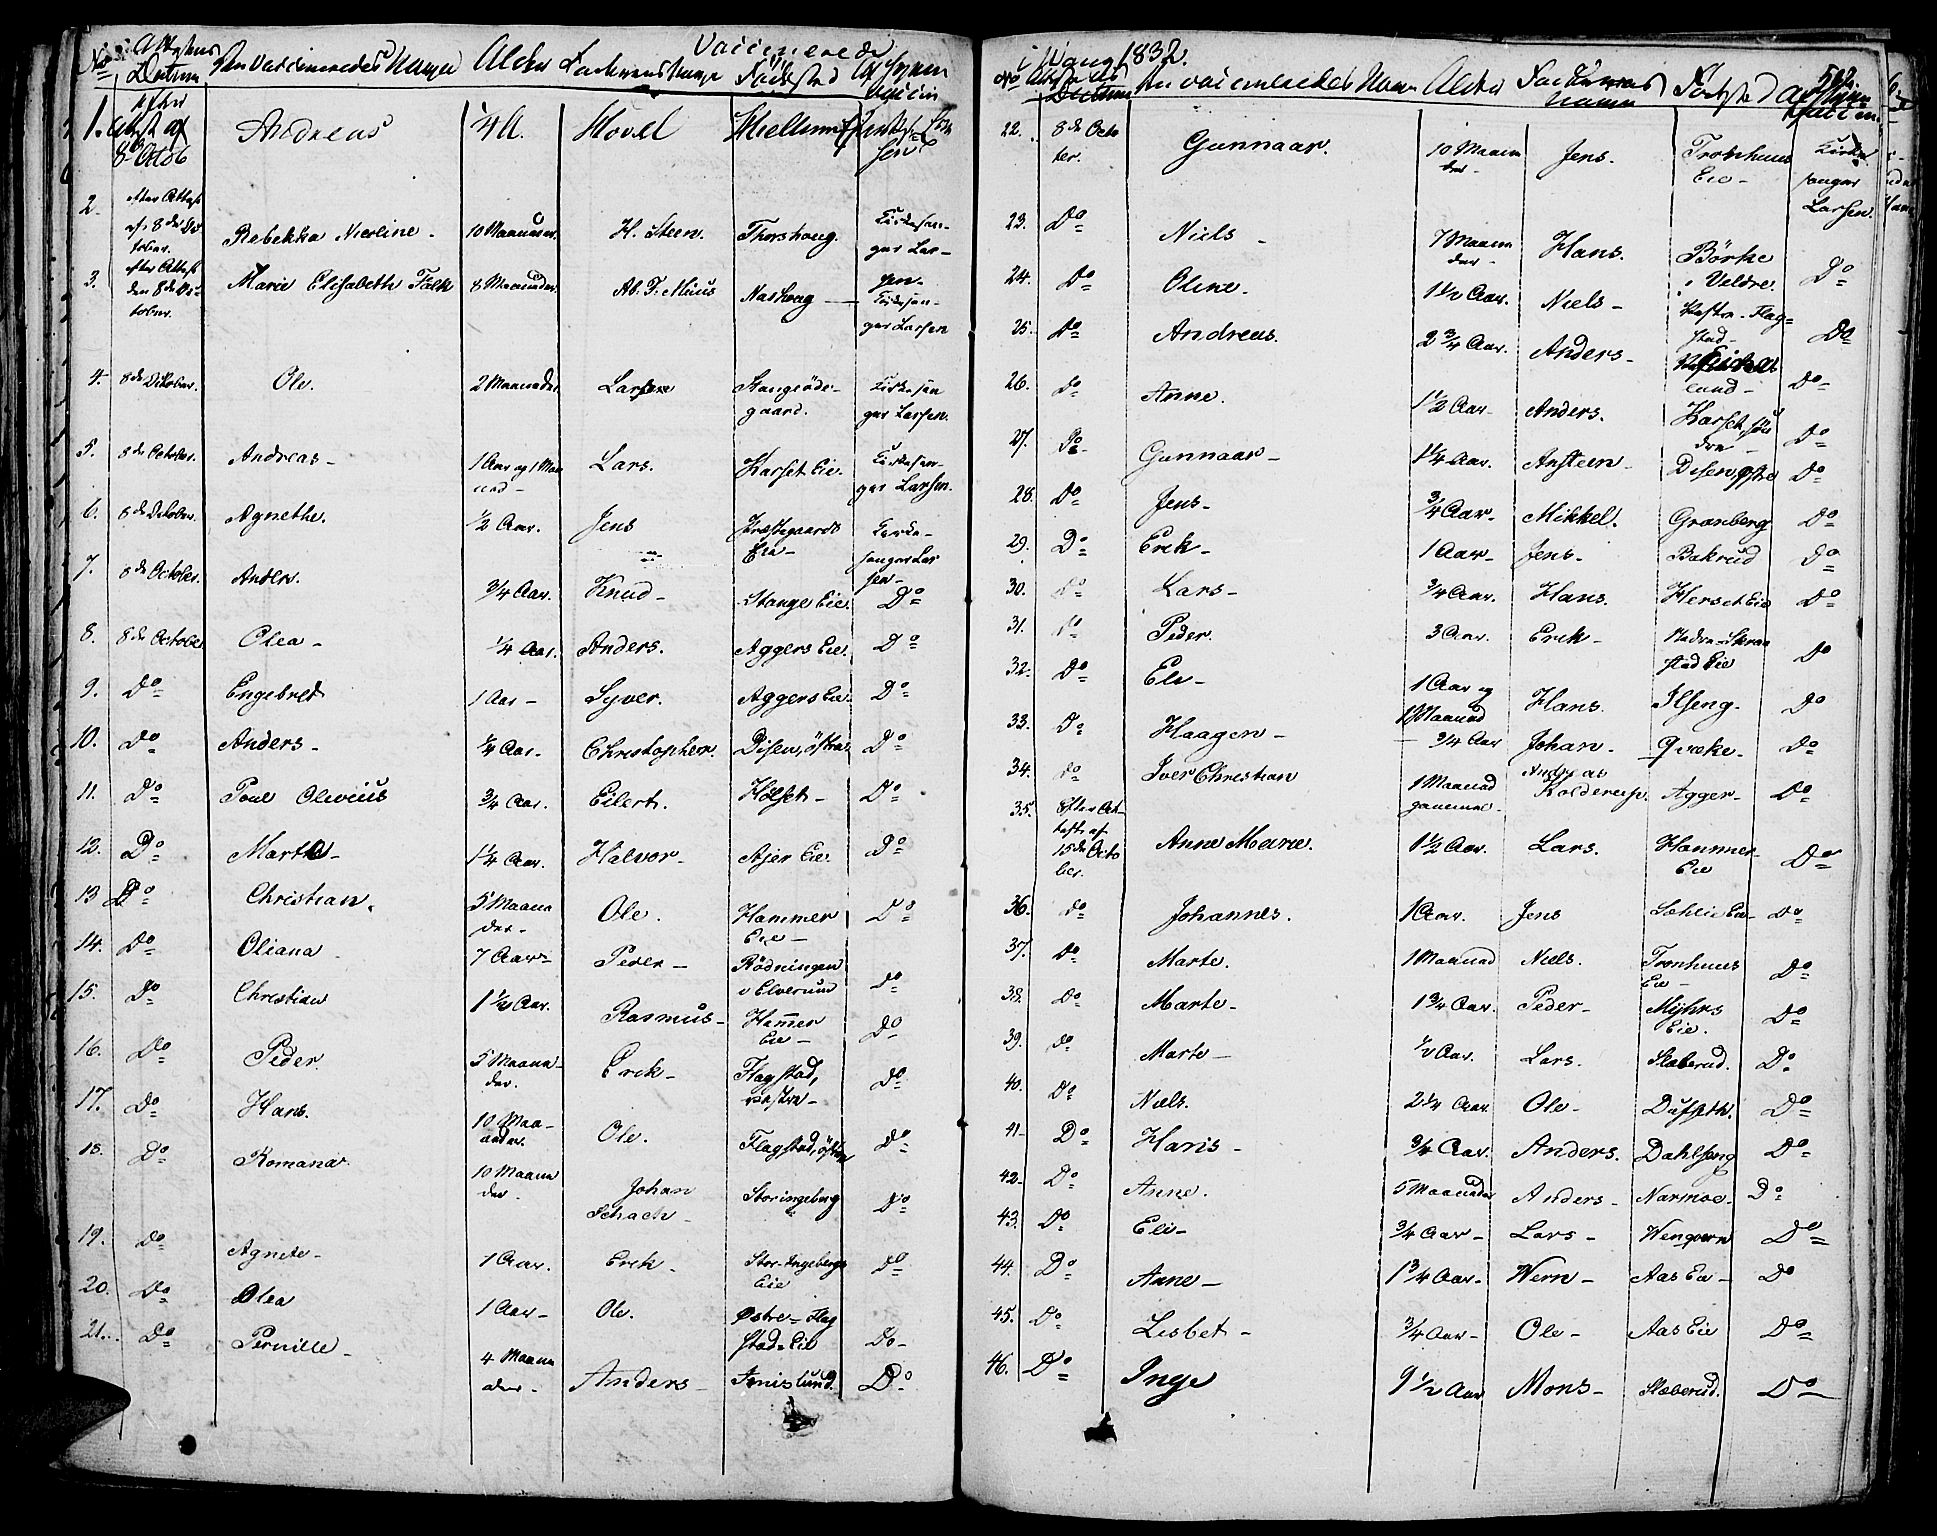 Vaccinerede
No Attestens Datum Den Vaccineredes Navn Alder Faderens Navn Födested Af hvem vaccin
1. efter Attest af 8 Octob Andreas ¼ A. Hovel
2. efter Attest af 8de Octobr. Rebekka Nicoline - 10 Maaneder. H. Steen. Thorshoug. Kirkesanger Larsen-
3. efter Attest den 8de October. Marie Elisabeth Falk 8 Maaneder. Nashoug - Kirkesanger Larsen
4. 8de October. Ole. 2 Maaneder Larsen Stangeödegaard. Kirkesanger Larsen.
5. 8de October. Andreas- 1 Aar og 1 Maaned- Lars. Karset Eie. Kirkesanger Larsen.
6. 8de October. Agnethe. ½ Aar. Jens Præstegaards Eie- Kirkesanger Larsen-
7. 8de October. Anders. ¾ Aar. Knud- Stange Eie. Do
8. 8de October Olea- ¼ Aar. Anders. Aggers Eie. Do
9. Do Engebret 1 Aar- Syver. Aggers Eie- Do
10. Do Anders- ¼ Aar. Christopher. Disen, östre Do
11. Do Poul Olivius ¾ Aar. Eilert. Hölset- Do
12. Do Marthe- 1¼ Aar. Halvor- Ajer Eie- Do
13 Do Christian. 5 Maaneder- Ole. Hammer Eie- Do
14. Do Oliana 7 Aar- Peder- Rödningen i Elverum Do
15. Do Christian 1½ Aar. Rasmus- Hammer Eie- Do
16. Do Peder. 5 Maaneder. Erek- Flagstad, vestre- Do
17. Do Hans. 10 Maaneder. Ole. Flagstad, östre Do
18. Do Romana. 10 Maaneder. Johan Schach- Storingeberg Do
19. Do Agnete- 1 Aar. Erek- Stor-Ingebergs Eie Do
20. Do Olea 1 Aar- Ole. Østre-Flagstad-Eie Do-
21. Do Pernille- 4 Maaneder- Anders- Do
i Vang 1832.
No Attestens Datum Den vaccineredes Navn Alder Faderens Navn Födested af hvem vaccin.
22. 8de October. Gunnaar. 10 Maaneder- Jens. Tronhuus Eie- Kirkesanger Larsen.
23. Do Niels- 7 Maaneder- Hans. Börke i Veldre. Do
24. Do Oline. 1½ Aar. Niels- Vestre-Flagstad- Do
25. Do Andreas. 2¾ Aar. Anders- Do-
26. Do Anne. 1½ Aar- Anders. Karset, söndre- Do
27. Do- Gunnaar- 1¼ Aar. Ansteen- Disen, östre Do
28. Do Jens- ¾ Aar- Mikkel. Granberg Do
29. Do Erek- 1 Aar- Jens- Bakrud Do
30. Do Lars- ¾ Aar. Hans. Herset Eie Do
31. Do Peder. 3 Aar. Erek- Nedre-Skraastad Eie Do
32. Do Ele- 1 Aar og 1 Maaned Hans. Ilseng- Do
33. Do Haagen- ¾ Aar Johan- Qvæke- Do
34. Do Iver Christian 1 Maaned gammel- Andreas Kolderup. Agger- Do
35. Efter Attest af 15de October. Anne Marie. 1½ Aar. Lars. Hammer Eie Do
36. Do Johannes. 1 Aar. Jens Sælie Eie- Do
37. Do Marte. 1 Maaned Niels. Tronhuus Eie- Do
38. Do Marte- 1¾ Aar. Peder- Mijhrs Eie. Do
39. Do Marte- ½ Aar. Lars. Slæberud. Do
40. Do Niels. 2¼ Aar. Ole- Dufseth. Do
41- Do Hans- ¾ Aar. Anders. Dahlseng Do
42- Do Anne. 5 Maaneder Anders- Narmoe- Do
43. Do Eli- ¾ Aar- Lars- Wenqvern Do
44. Do Anne- 1¾ Aar. Wern- Aas Eie- Do
45. Do Lisbet- ¾ Aar- Ole- Aas Eie Do
46. Do Inge 9½ Aar Mons- Slæberud. Do